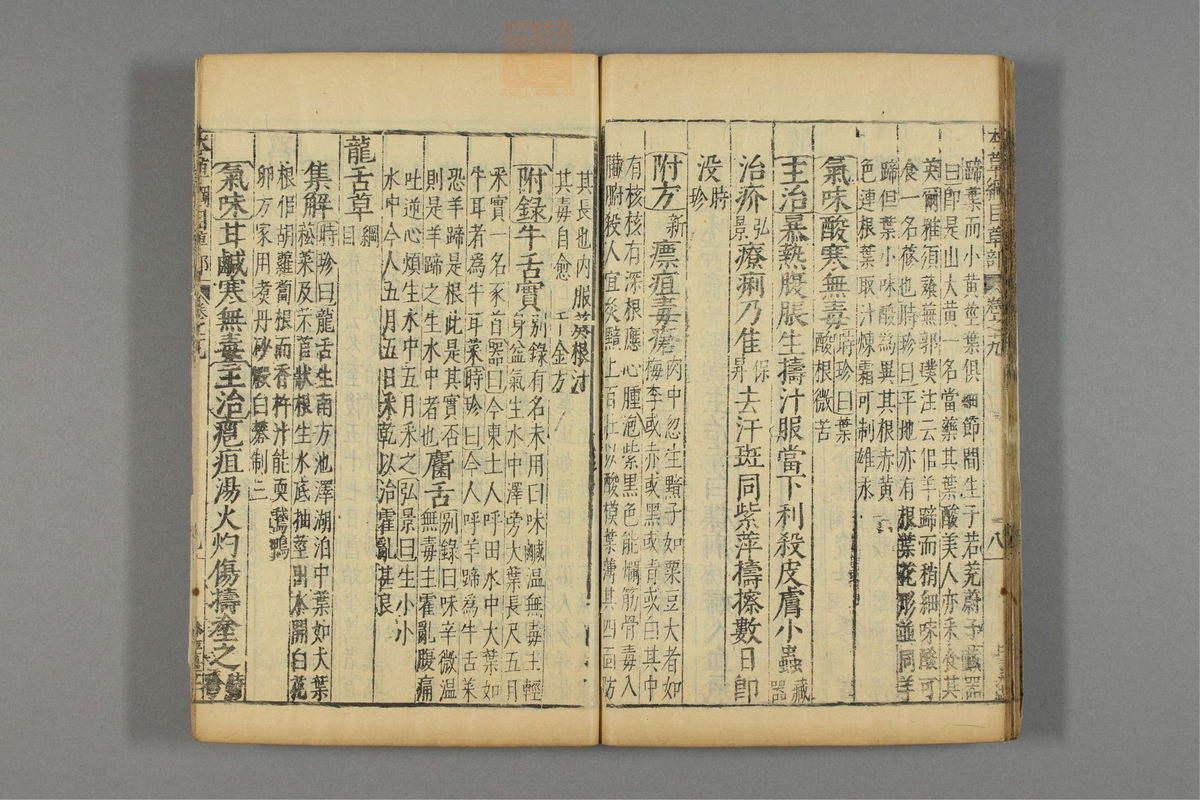 本草綱目草部 卷之九 八
蹄葉而小黄莖葉俱細節間生子若茺蔚子藏器
曰即是山大黄一名當藥其葉酸美人亦采食其
英爾雅須薞蕪郭璞注云似羊蹄而稍細味酸可
食一名蓨也時珍曰平地亦有根葉花形並同羊
蹄但葉小味酸為異其根赤黄
色連根葉取汁煉霜可制雄汞
氣味酸寒無毒時珍曰葉
酸根微苦
主治暴熱腹脹生擣汁服當下利殺皮膚小蟲藏
器
治疥弘
景療痢乃隹保
昇去汗斑同紫萍擣擦數日即
没時
珍
附方新瘭疽毒瘡肉中忽生黯子如粟豆大者如
梅李或赤或黑或青或白其中
有核核有深根應心腫泡紫黑色能爛筋骨毒入
臟腑殺人宜灸黯上百壯以酸模葉薄其四面防
其長也内服葉根汁
其毒自愈千金方
附録牛舌實别録有名未用曰味鹹温無毒主輕
身益氣生水中澤旁大葉長尺五月
采實一名豕首器曰今東土人呼田水中大葉如
牛耳者為牛耳菜時珍曰今人呼羊蹄為牛舌菜
恐羊蹄是根此是其實否麕舌别録曰味辛微温
無毒主霍亂腹痛
則是羊蹄之生水中者也
吐逆心煩生水中五月采之弘景曰生小小
水中今人五月五日采乾以治霍亂甚良
龍舌草綱
目
集解時珍曰龍舌生南方池澤湖泊中葉如大葉
菘菜及芣苢狀根生水底抽莖出水開白花
根似胡蘿蔔根而香杵汁能耎鵝鴨
卵方家用煑丹砂煅白礬制三
氣味甘鹹寒無毒主治癰疽湯火灼傷擣塗之時
珍
本草綱目草部 卷之九